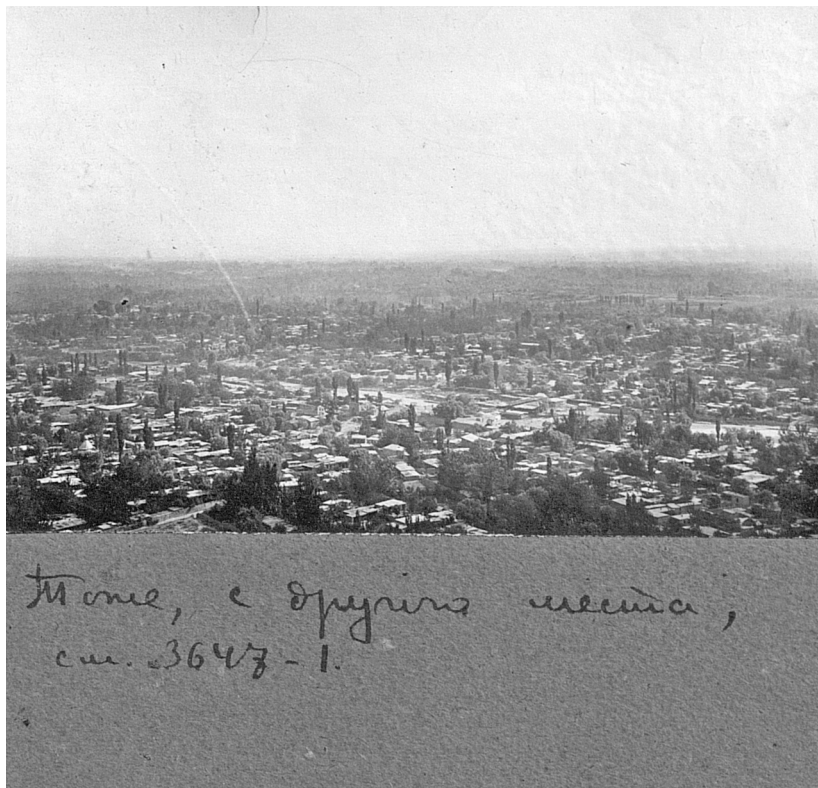 Тоже, с другого места,
см. 3647-1.